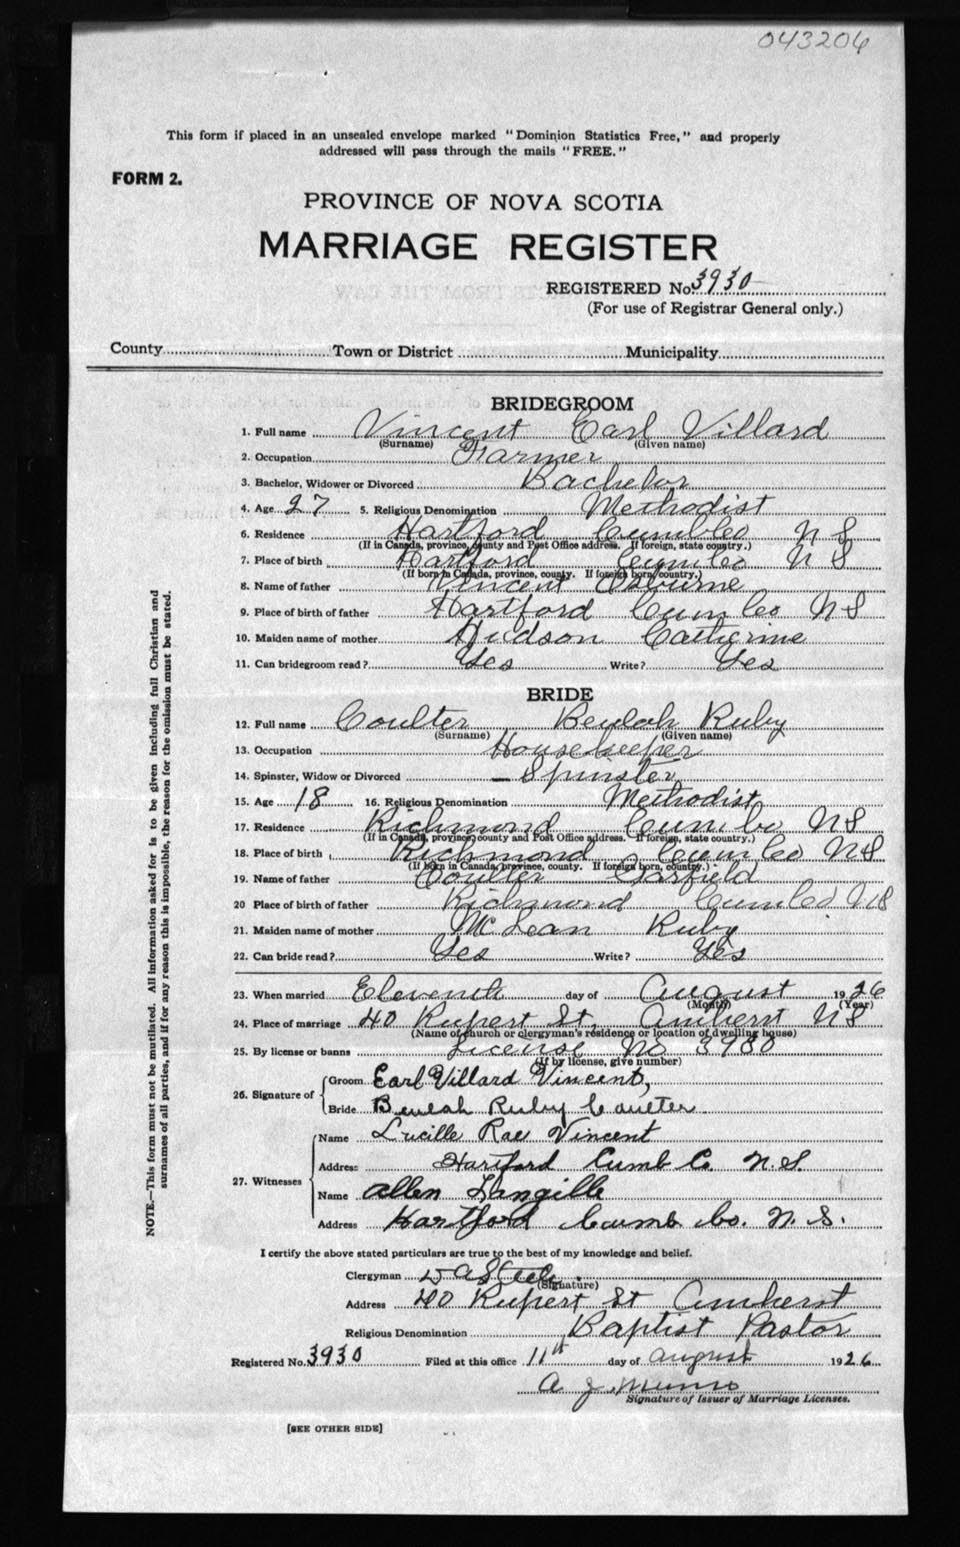 043206
This form if placed in an unsealed envelope marked "Dominion Statistics Free," and properly
addressed will pass through the mails "FREE."
FORM 2.
PROVINCE OF NOVA SCOTIA
MARRIAGE REGISTER
REGISTERED No. 3930
(For use of Registrar General only.)
County Town or District Municipality
BRIDEGROOM
1. Full name Vincent Earl Villard
(Surname) (Given name)
2. Occupation Farmer
3. Bachelor, Widower or Divorced Bachelor
4. Age 27 5. Religious Denomination Methodist
6. Residence Hartford Cumb Co N S
(If in Canada, province, county and Post Office address. If foreign, state country.)
7. Place of birth Hartford Cum Co N S
(If born in Canada, province, county. If foreign born, country.)
8. Name of father Vincent Osburne
9. Place of birth of father Hartford Cum Co NS
10. Maiden name of mother Hudson Catherine
11. Can bridegroom read? Yes Write? Yes
BRIDE
12. Full name Coulter Beulah Ruby
(Surname) (Given name)
13. Occupation Housekeeper
14. Spinster, Widow or Divorced Spinster
15. Age 18 16. Religious Denomination Methodist
17. Residence Richmond Cum Co NS
(If in Canada, province, county and Post Office address. If foreign, state country.)
18. Place of birth Richmond Cum Co NS
(If born in Canada, province, county. If foreign born, country.)
19. Name of father Coulter Garfield
20 Place of birth of father Richmond Cum Co NS
21. Maiden name of mother McLean Ruby
22. Can bride read? Yes Write? Yes
23. When married Eleventh day of August 1926
(Month) (Year)
24. Place of marriage 40 Rupert St, Amherst NS
(Name of church or clergyman's residence or location of dwelling house)
25. By license or banns License No 3930
(If by license, give number)
26. Signature of Groom Earl Villard Vincent,
Bride Beulah Ruby Coulter
27. Witnesses Name Lucille Rae Vincent
Address Hartford Cumb Co N.S.
Name Allen Langille
Address Hartford Cumb Co. N. S.
I certify the above stated particulars are true to the best of my knowledge and belief.
Clergyman D A Steele
(Signature)
Address 40 Rupert St Amherst
Religious Denomination Baptist Pastor
Registered No. 3930 Filed at this office 11th day of August 1926
A J Munro
Signature of Issuer of Marriage Licenses.
[SEE OTHER SIDE]
NOTE.—This form must not be mutilated. All information asked for is to be given including full Christian and
surnames of all parties, and if for any reason this is impossible, the reason for the omission must be stated.